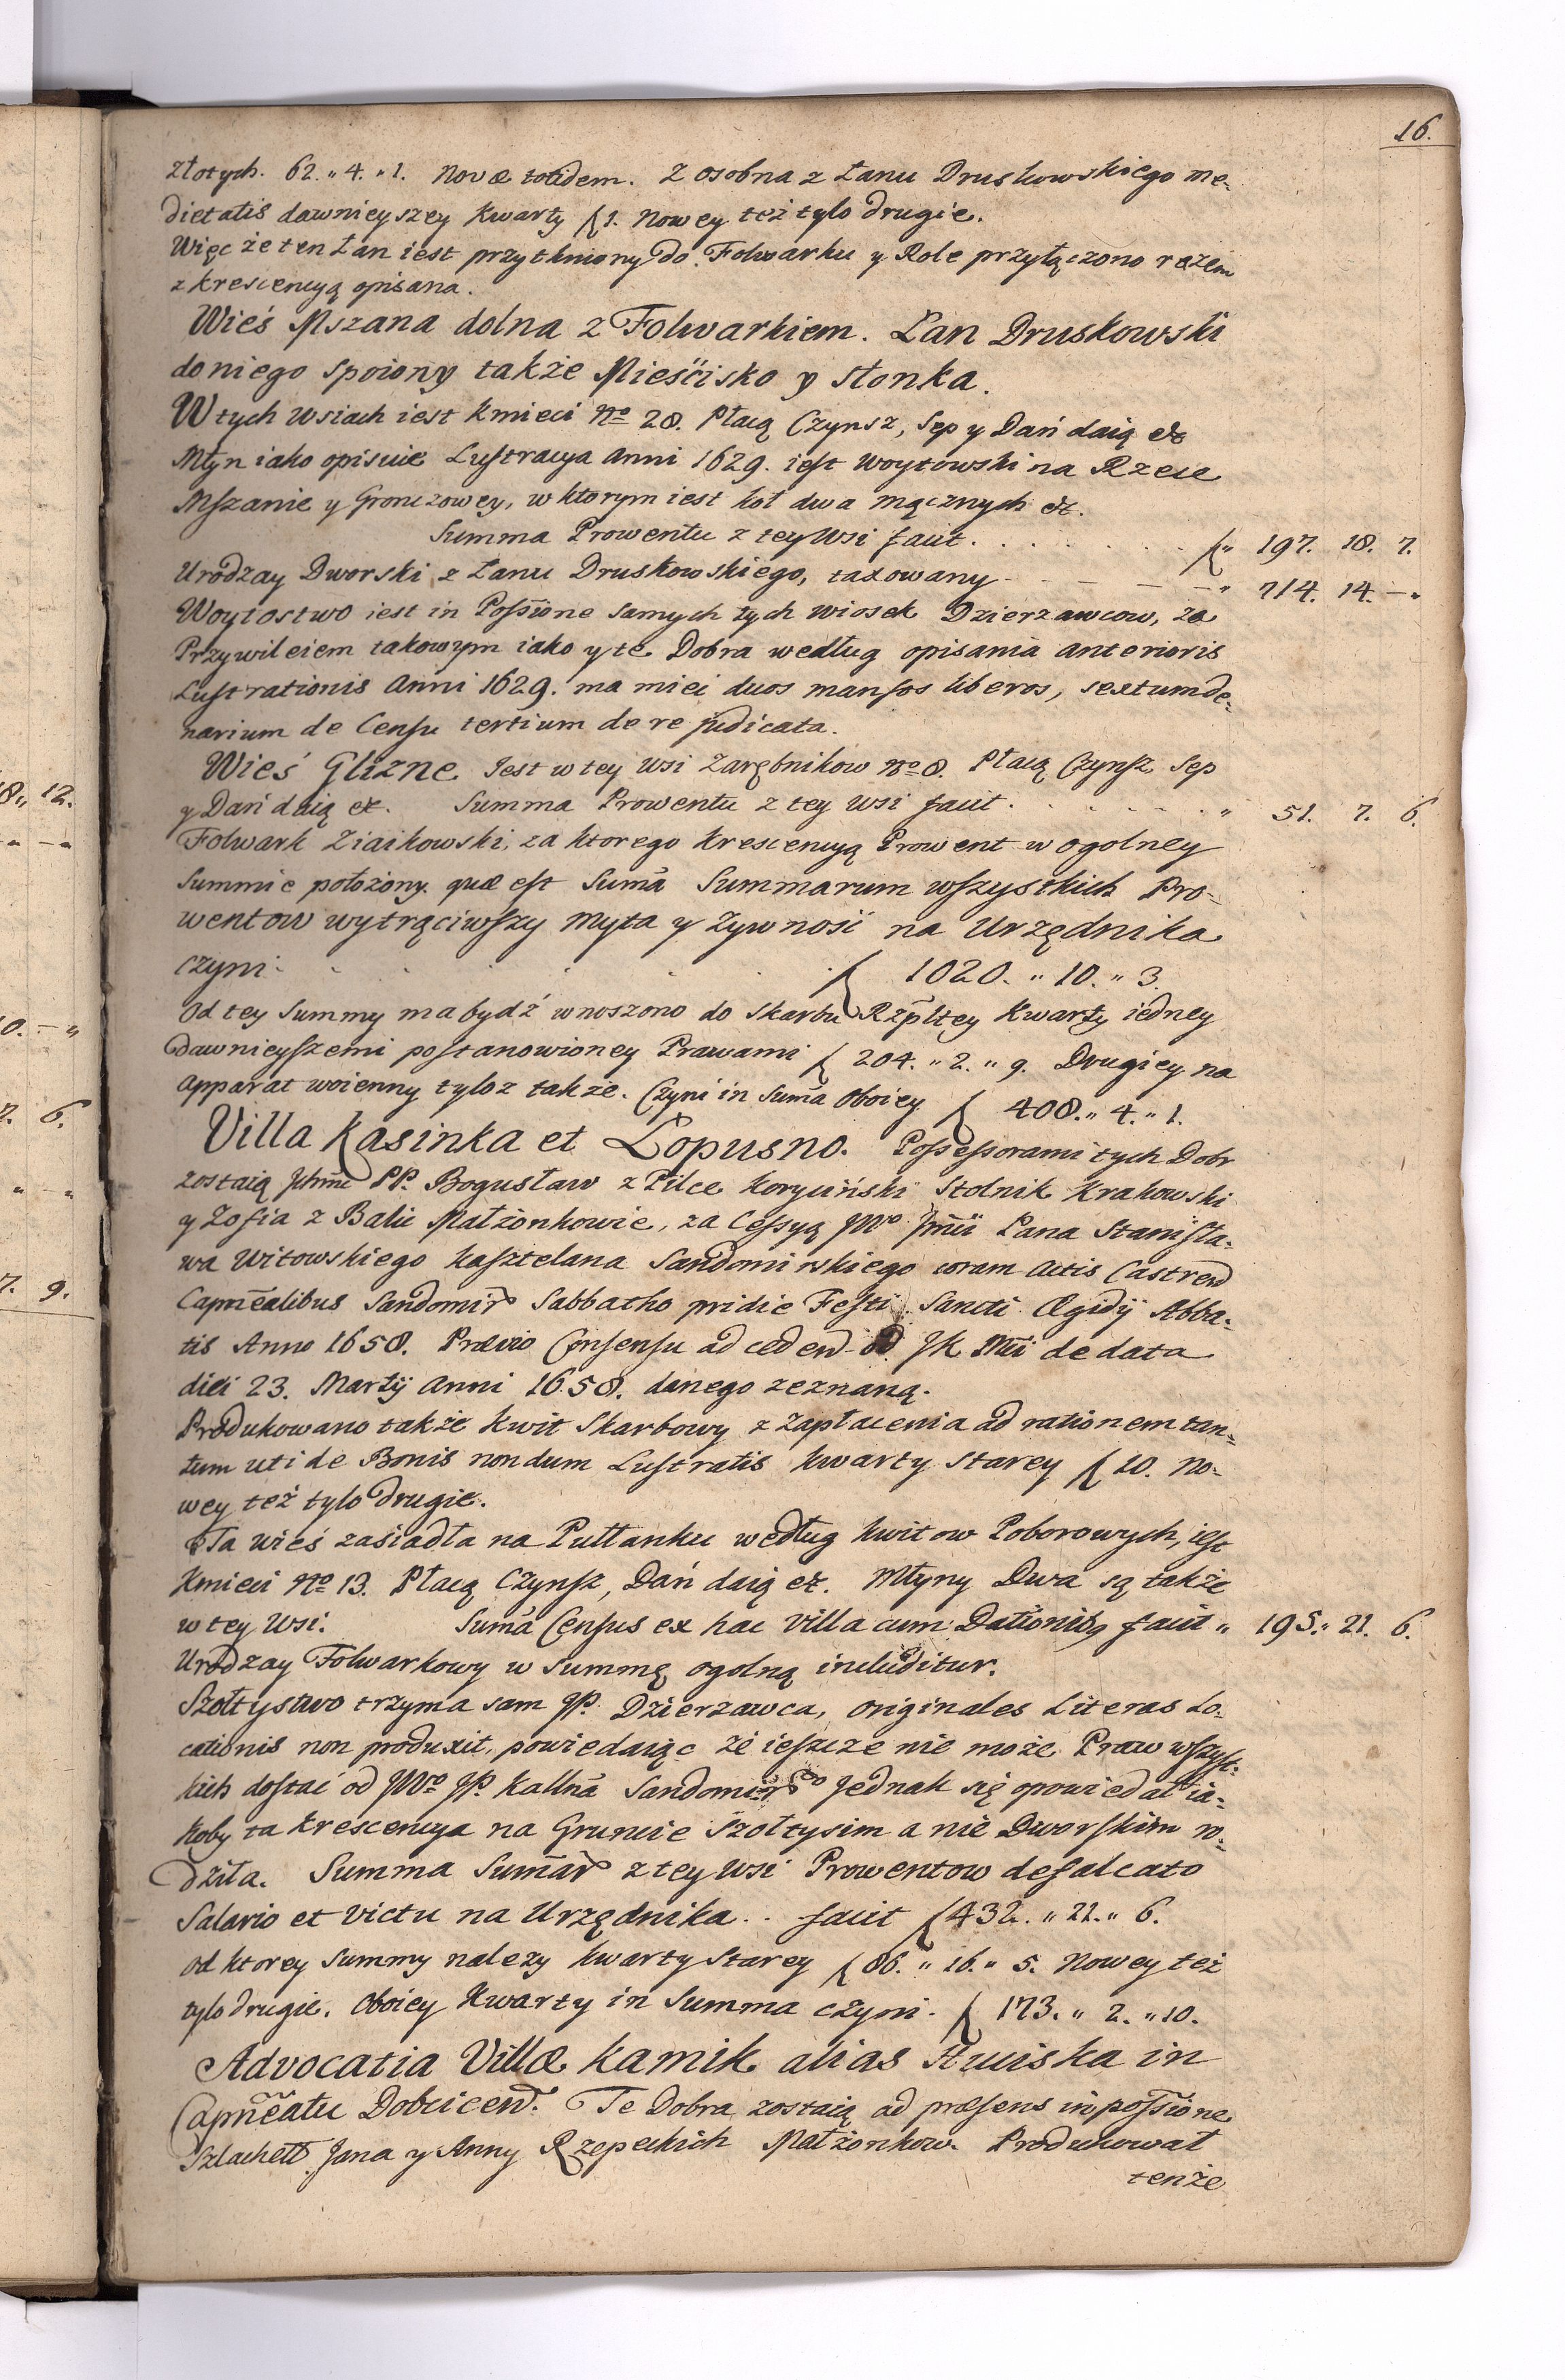 16.
złotych. 62. „ 4. „ 1. Novæ totidem. Z osobna z Łanu Druskowskiego me-
dietatis dawnieyszey kwarty ƒ 1. Nowey też tylo drugie.
Więc że ten Łan iest przytkniony do Folwarku y Role przyłączono razem
z krescencyą opisana.
Wieś Mszana dolna z Folwarkiem. Łan Druskowski
do niego spoiony także Mieśćisko y Słonka.
W tych wsiach iest Kmieci No 28. Płacą Czynsz, Sep y Dań daią &
Młyn iako opisuie Lustracya Anni 1629. iest woytowski na Rzece
Mszanie y Gronczowey, w ktorym iest koł dwa mącznych &.
Summa Prowentu z tey Wsi facit . . . . . . . . ƒ „ 197. 18. 7.
Urodzay Dworski z Łanu Druskowskiego, taxowany - - - - „ 714. 14. - „
Woytostwo iest in Possione samych tych wiosek Dzierzawcow, za
Przywileiem takowym iako y te Dobra według opisania anterioris
Lustrationis Anni 1629. ma mieć duos mansos liberos, sextum de-
narium de Censu tertium de re judicata.
Wieś Glizne Jest w tey Wsi Zarębnikow No 8. Płacą Czynsz Sep
y Dań daią &. Summa Prowentu z tey Wsi facit . . . . . „ 51. 7. 6.
Folwark Ziaikowski, za ktorego krescencyą Prowent w ogolney
Summie położony. quæ est Suma Summarum wszystkich Pro-
wentow wytrąciwszy Myta y Zywność na Urzędnika
czyni . . . . . . ƒ 1020. „ 10. „ 3.
Od tey Summy ma bydź wnoszono do Skarbu Rzpltey kwarty iedney
dawnieyszemi postanowioney Prawami ƒ 204. „ 2. „ 9. Drugiey na
apparat woienny tyloz także. Czyni in Suma Oboiey ƒ 408. „ 4. „ 1.
Villa Kasinka et Łopusno. Possessorami tych Dobr
zostaią Jchmć PP. Bogusław z Pilce Koryciński Stolnik Krakowski
y Zofia z Balic Małżonkowie, za Cessyą JMo Jmci Pana Stanisła-
wa Witowskiego Kasztelana Sandomirskiego coram Actis Castren
Capnealibus Sandomir Sabbatho pridie Festi Sancti Ægidij Abba-
tis Anno 1658. Prævio Consensu ad ceden od JK Mci de data
diei 23. Martij Anni 1658. danego zeznaną.
Produkowano także kwit Skarbowy z Zapłacenia ad rationem tan-
tum uti de Bonis nondum Lustratis kwarty Starey ƒ 10. No-
wey też tylo drugie.
Ta wieś zasiadła na Pułłanku według kwitow Poborowych, iest
Kmieci No 13. Płacą Czynsz, Dań daią &. Młyny Dwa są także
w tey Wsi. Suma Census ex hac Villa cum Dationibq facit „ 195. „ 21. 6.
Urodzay Folwarkowy w Summę ogolną includitur.
Szołtystwo trzyma sam JP. Dzierzawca, originales Literas Lo-
cationis non produxit, powiedaiąc że ieszcze nie może Praw wszyst-
kich dostać od JMo JP. Kallna Sandomir go Jednak się opowiedał ia-
koby ta krescencya na Gruncie Szołtysim a nie Dworskim ro-
dziła. Summa Sumar z tey Wsi Prowentow defalcato
Salario et victu na Urzędnika . . facit ƒ 432. „ 21. „ 6.
Od ktorey Summy nalezy kwarty Starey ƒ 86. „ 16. „ 5. Nowey też
tylo drugie. Oboiey Kwarty in Summa czyni . ƒ 173. „ 2. „ 10.
Advocatia Villæ Kamik alias in
Capneatu Dobcicen. Te Dobra zostaią ad præsens in possione
Szlachett Jana y Anny Rzepeckich Małżonkow. Produkował
tenże